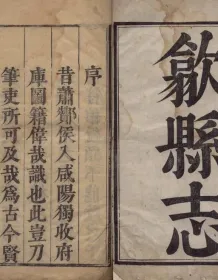 歙縣志
序
昔蕭酇侯入咸陽獨收府
庫圖籍偉哉識也此豈刀
筆吏所可及哉爲古今賢